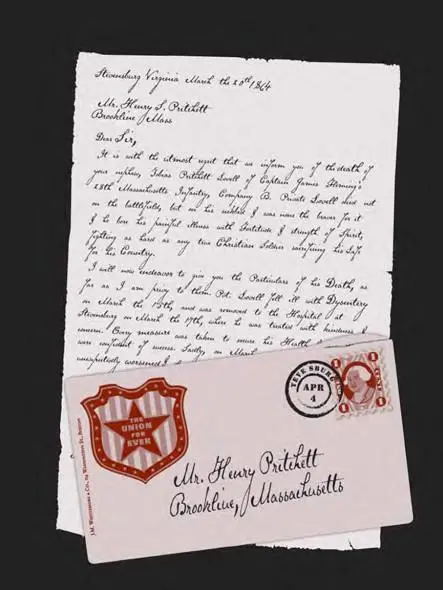 Stevensburg Virginia March the 20th, 1864
Mr. Henry S. Pritchett
Brookline, Mass
Dear Sir,
It is with the utmost regret that we inform you of the death of
your nephew, Tobias Pritchett Lovell of Captain James Fleming's
28th Massachusetts Infantry, Company B. Private Lovell died not
on the battlefield, but in his sickbed & was none the braver for it
& he bore his painful illness with Fortitude & strength of Spirit,
fighting as hard as any true Christian Soldier sacrificing his Life
for his Country.
I will now endeavor to give you the Particulars of his Death, as
far as I am privy to them. Pvt. Lovell fell ill with Dysentery
on March the 15th, and was removed to the Hospital at
Stevensburg on March the 17th, where he was treated with kindness &
concern. Every measure was taken to secure his Health &
were confident of success. Sadly, on March
unexpectedly worsened &
THE
UNION
FOR
EVER
J.M. Whittemore & Co., 114 Washington St., Boston
APR
4
1 1
1 1
Mr. Henry Pritchett
Brookline, Massachusetts